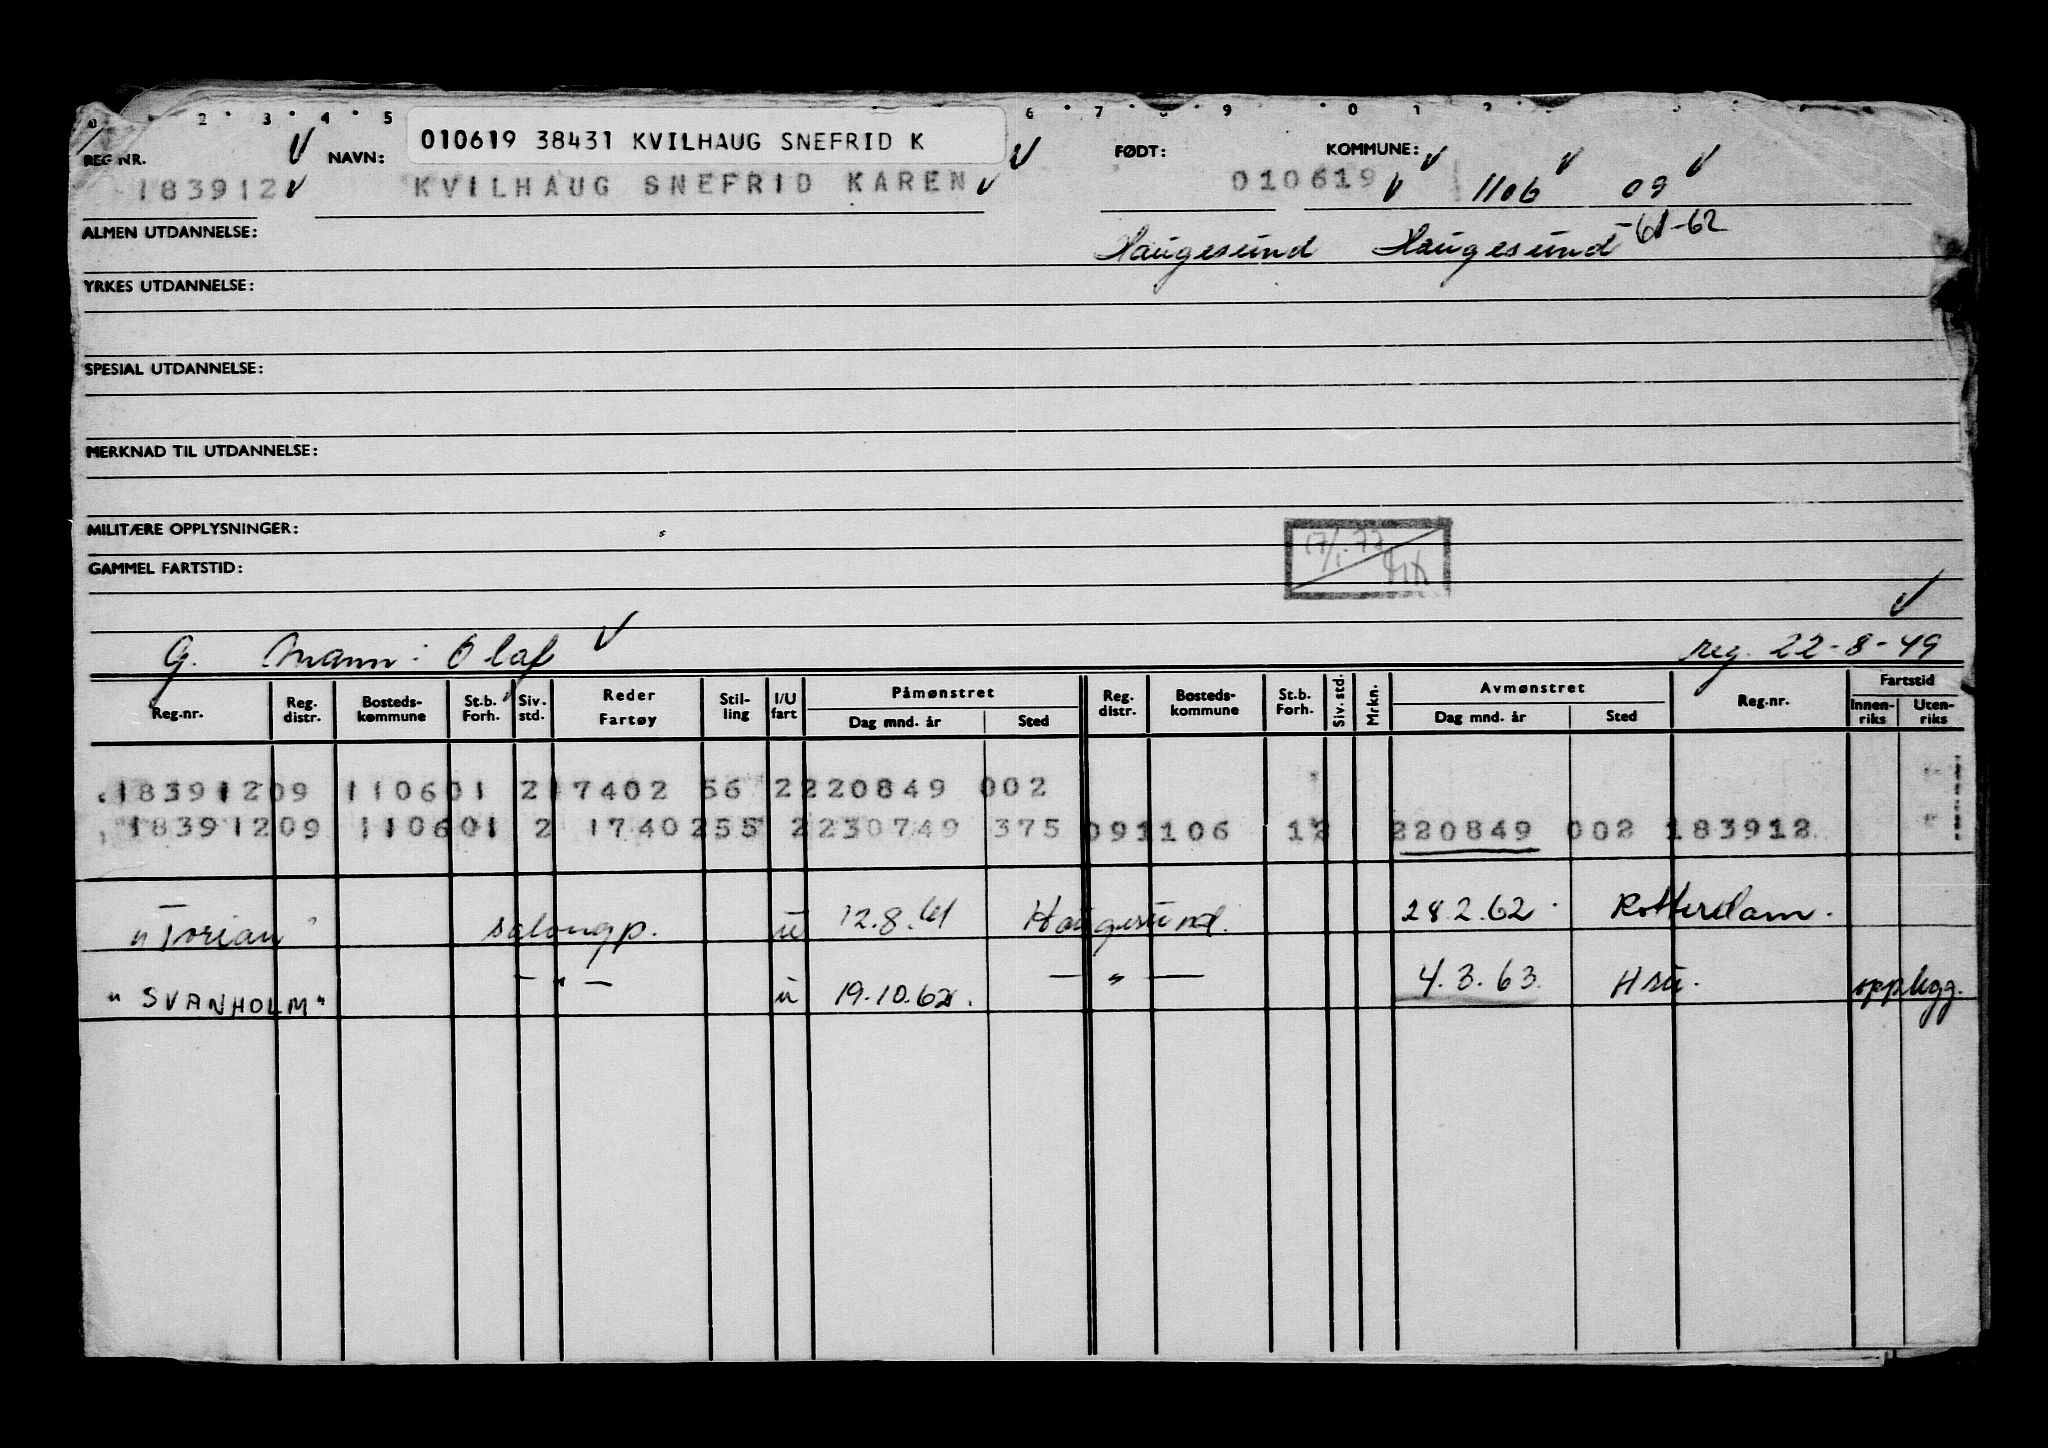 2 3 4 5 6 7 8 9 0 1 2
010619 38431 KVILHAUG SNEFRID K
REG NR. NAVN: FØDT: KOMMUNE:
183912 KVILHAUG SNEFRID KAREN 010619 1106 09
ALMEN UTDANNELSE: Haugesund Haugesund -61-62
YRKES UTDANNELSE:
SPESIAL UTDANNELSE:
MERKNAD TIL UTDANNELSE:
MILITÆRE OPPLYSNINGER:
17/1.73
GAMMEL FARTSTID:
G. Mann: Olaf reg. 22-8-49
Reg.nr. Reg. distr. Bosteds-kommune St.b. Forh. Siv. std. Reder Fartøy Stil-ling I/U fart Påmønstret Dag mnd. år Sted Reg. distr. Bosteds-kommune St.b. Forh. Siv. std. Mrkn. Avmønstret Dag mnd. år Sted Reg.nr. Fartstid Innen-riks Uten-riks
18391209 110601 2 7402 56 2220849 002
18391209 110601 2 1740255 2230749 375 091106 12 220849 002 183912
"Torian" salongp. u 12.8.61 Haugesund. 28.2.62 Rotterdam.
"SVANHOLM" - " - u 19.10.62. — " — 4.3.63 Hsu. opplegg.